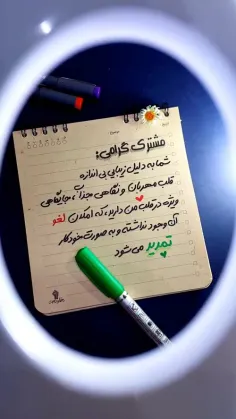 مشتری گرامی:
شما به دلیل زیبایی بی اندازه
قلب مهربان و نگاهی جذاب، جایگاهی
ویژه در قلب من دارید، که امکان لغو
آن وجود نداشته و به صورت خودکار
تمدید می شود